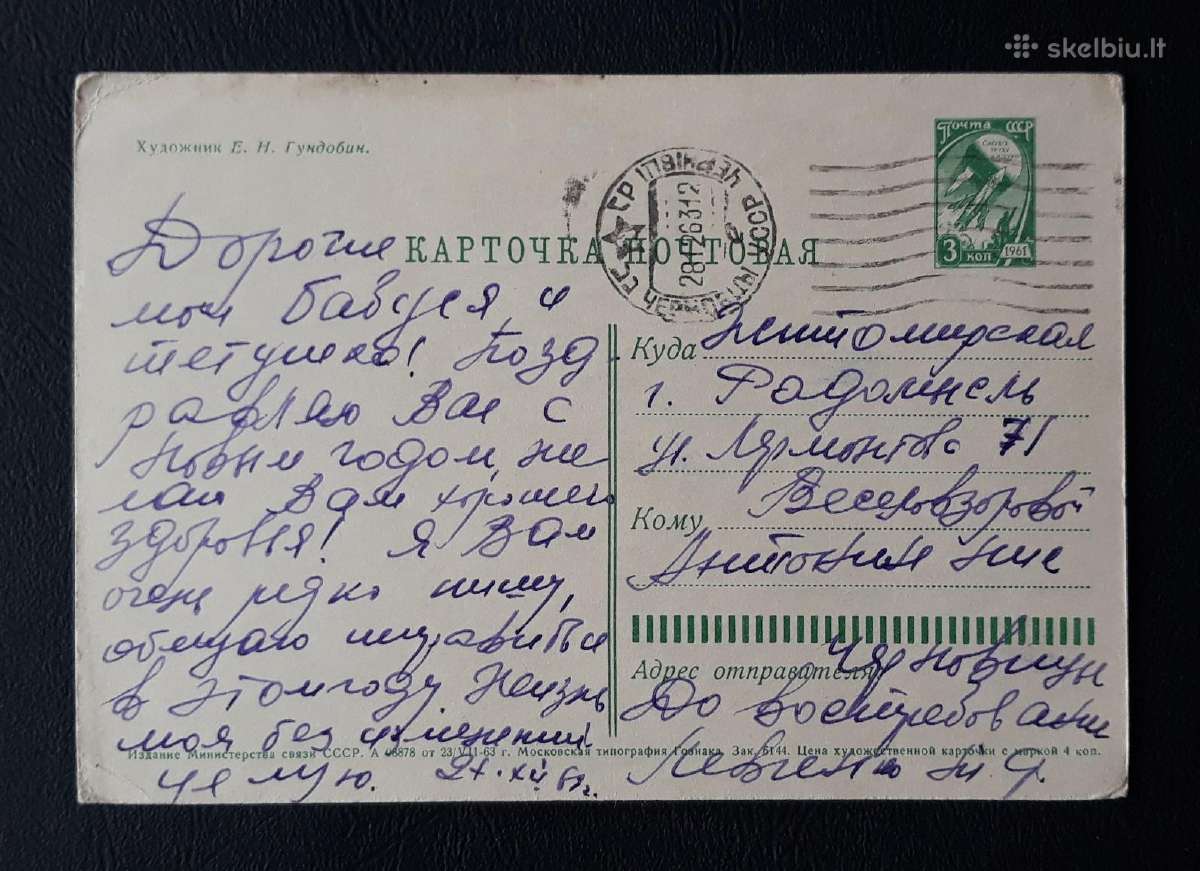 skelbiu.lt
Художник Е. Н. Гундобин.
Почта СССР
3 коп 1961
КАРТОЧКА ПОЧТОВАЯ
ЧЕРНІВЦІ УССР
28112 6312
Дорогие
мои бабуся и
тетушка! Позд
равляю Вас с
Новым годом, же
лаю Вам хорошего
здоровья! Я Вам
очень редко пишу,
обещаю исправиться
в этом году. Жизнь
моя без изменений.
Целую.
Куда Житомирская
г. Радомысль
ул. Лермонтова 71
Кому Веселовзоровой
Антонине
Адрес отправителя Черновцы
До востребования
Левченко
Издание Министерства связи СССР. А 08878 от 23/VII-63 г. Московская типография Гознака. Зак. 5144. Цена художественной карточки с маркой 4 коп.